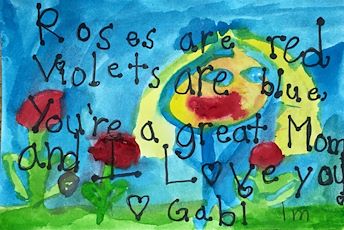 Roses are red
Violets are blue,
You're a great Mom
and I L♡ve you
♡ Gabi